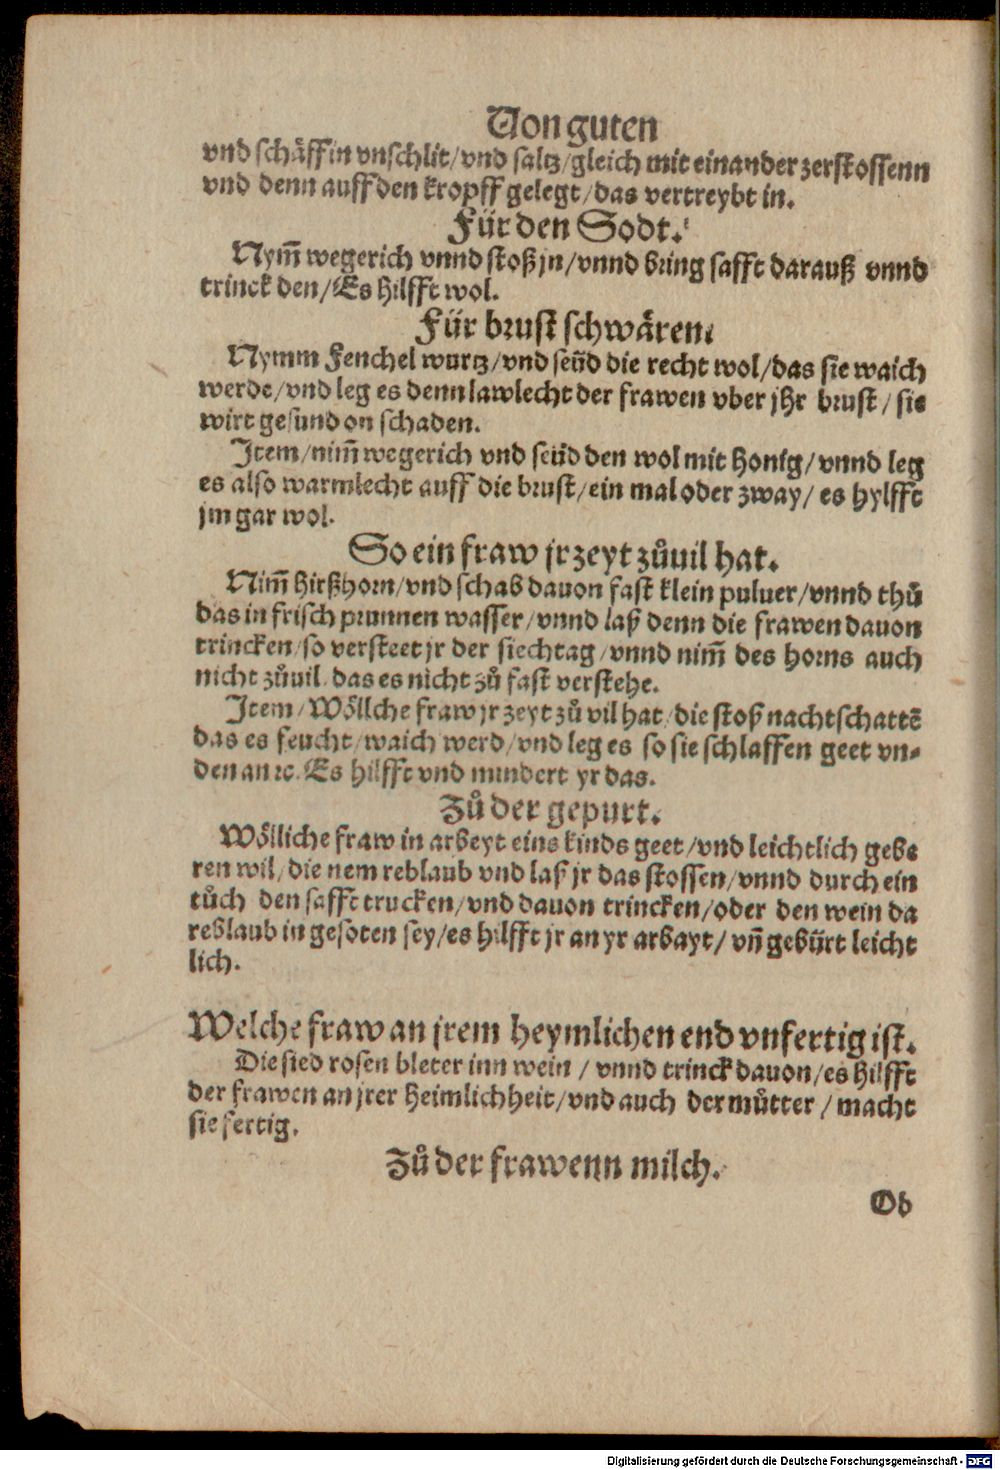 Von guten
vnd schäffin vnschlit/vnd saltz/gleich mit einander zerstossenn
vnd denn auff den kropff gelegt/das vertreybt in.
Für den Sodt.
Nym̃ wegerich vnnd stoß jn/vnnd bring safft darauß vnnd
trinck den/Es hilfft wol.
Für brust schwären.
Nymm Fenchel wurtz/vnd seüd die recht wol/das sie waich
werde/vnd leg es denn lawlecht der frawen vber jhr brust/ sie
wirt gesund on schaden.
Item/nim̃ wegerich vnd seüd den wol mit honig/vnnd leg
es also warmlecht auff die brust/ein mal oder zway/ es hylfft
jm gar wol.
So ein fraw jr zeyt zůuil hat.
Nim̃ hirßhorn/vnd schab dauon fast klein puluer/vnnd thů
das in frisch prunnen wasser/vnnd laß denn die frawen dauon
trincken/so versteet jr der siechtag/vnnd nim̃ des horns auch
nicht zůuil/das es nicht zů fast verstehe.
Item/Wöllche fraw jr zeyt zů vil hat/die stoß nachtschattē
das es feucht/waich werd/vnd leg es so sie schlaffen geet vn⸗
den an ꝛc. Es hilfft vnd mindert yr das.
Zů der gepurt.
Wölliche fraw in arbeyt eins kinds geet/vnd leichtlich gebe
ren wil/die nem reblaub vnd laß jr das stossen/vnnd durch ein
tůch den safft trucken/vnd dauon trincken/oder den wein da
reblaub in gesoten sey/es hilfft jr an yr arbayt/vn̄ gebürt leicht
lich.
Welche fraw an jrem heymlichen end vnfertig ist.
Die sied rosen bleter inn wein / vnnd trinck dauon/es hilfft
der frawen an jrer heimlichheit/vnd auch der můtter/macht
sie fertig.
Zů der frawenn milch.
Ob
Digitalisierung gefördert durch die Deutsche Forschungsgemeinschaft - DFG